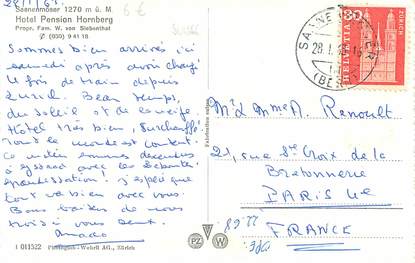 Saanenmöser 1270 m ü. M.
Hotel Pension Hornberg
Propr. Fam. W. von Siebenthal
✆ (030) 9 41 18
6 €
SUISSE
Sommes bien arrivés ici
samedi après avoir changé
de train depuis
Zurich. Beau temps,
du soleil et de la neige.
Hôtel très bien, surchauffé
tout le monde est content.
Ce matin sommes descendus
à Gstaad avec les
j'espère que
tout va bien avec vous.
Bons baisers de nous
trois à vous deux.
1 011522
Photoglob-Wehrli AG., Zürich
PZ W
SAANENMÖSER
28. I.
(BERN)
HELVETIA 30
ZÜRICH
M. & Mme A. Renoult
rue Ste Croix de la
Bretonnerie
PARIS 4e
FRANCE